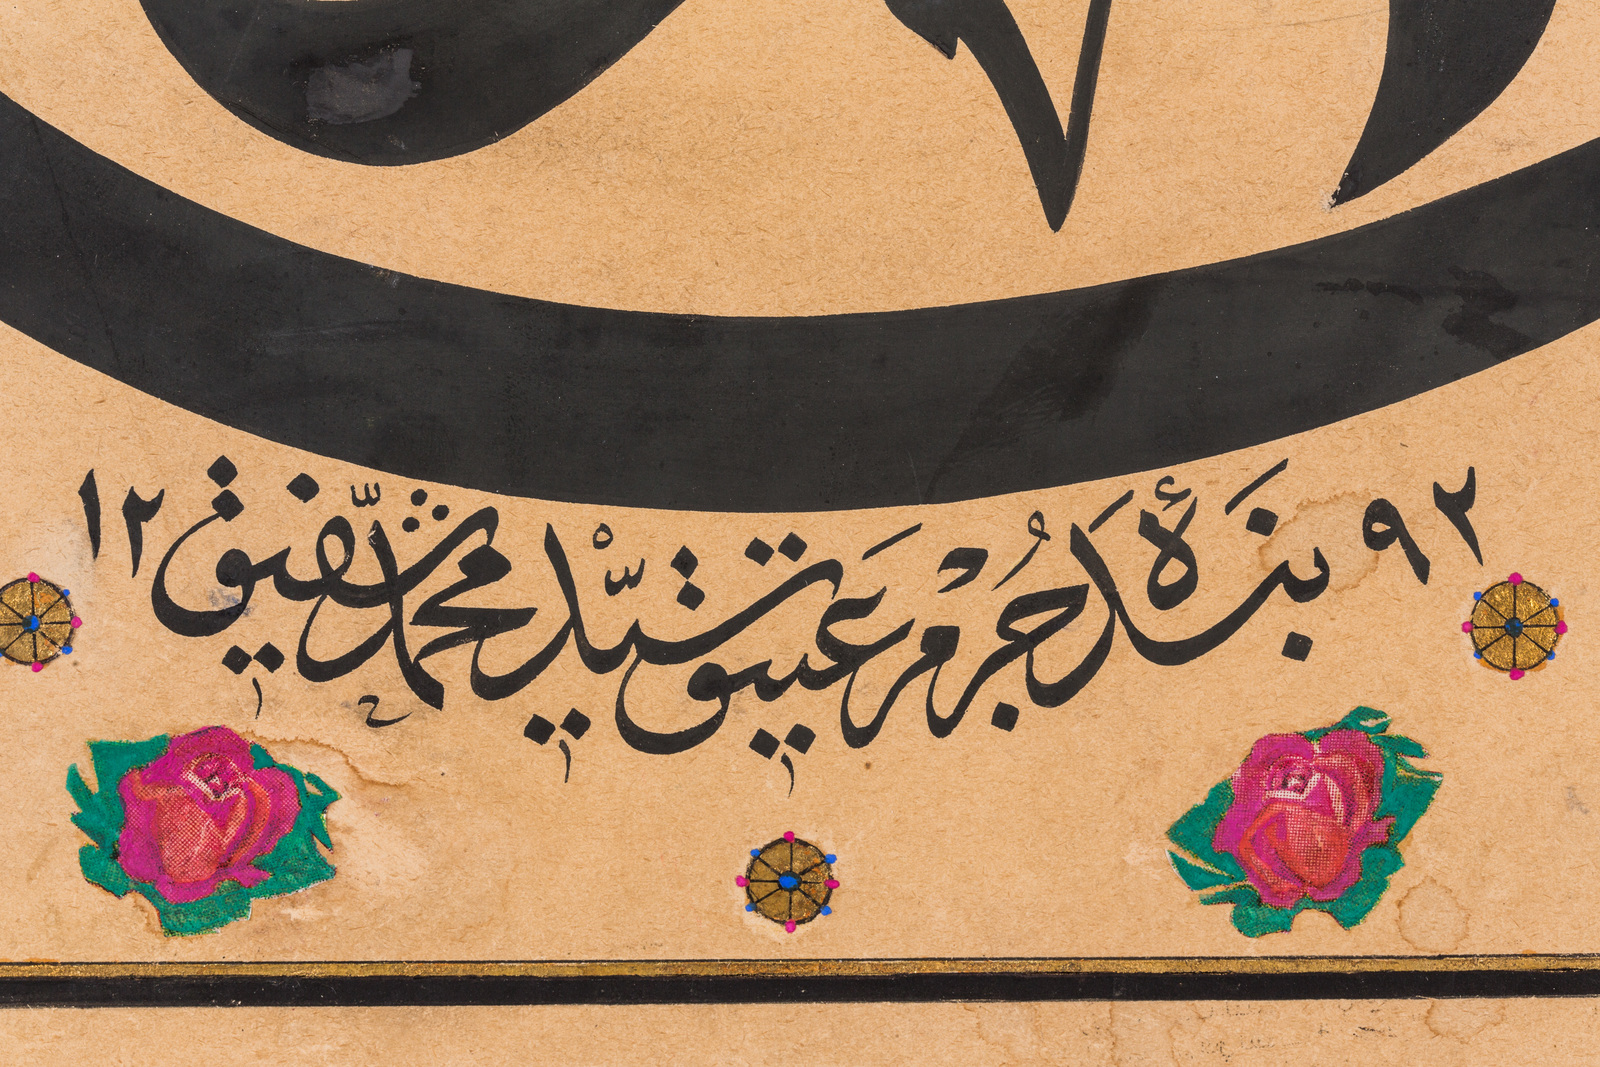 ٩٢ بندهٔ جُرم عَتيق سيّد محمد شفيق ١٢